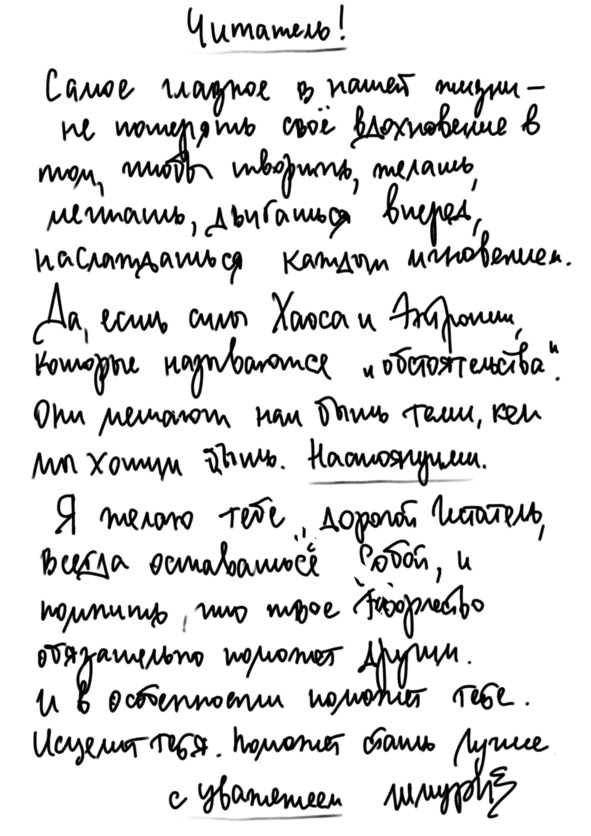 Читатель!
Самое главное в нашей жизни –
не потерять своё вдохновение в
том, чтобы творить, желать,
мечтать, двигаться вперед,
наслаждаться каждым мгновением.
Да, есть силы Хаоса и Энтропии,
которые называются "обстоятельства".
Они мешают нам быть теми, кем
мы хотим быть. Настоящими.
Я желаю тебе, дорогой Читатель,
всегда оставаться собой, и
помнить, что твое творчество
обязательно поможет другим.
И в особенности поможет тебе.
Исцелит тебя. Поможет стать лучше
с уважением